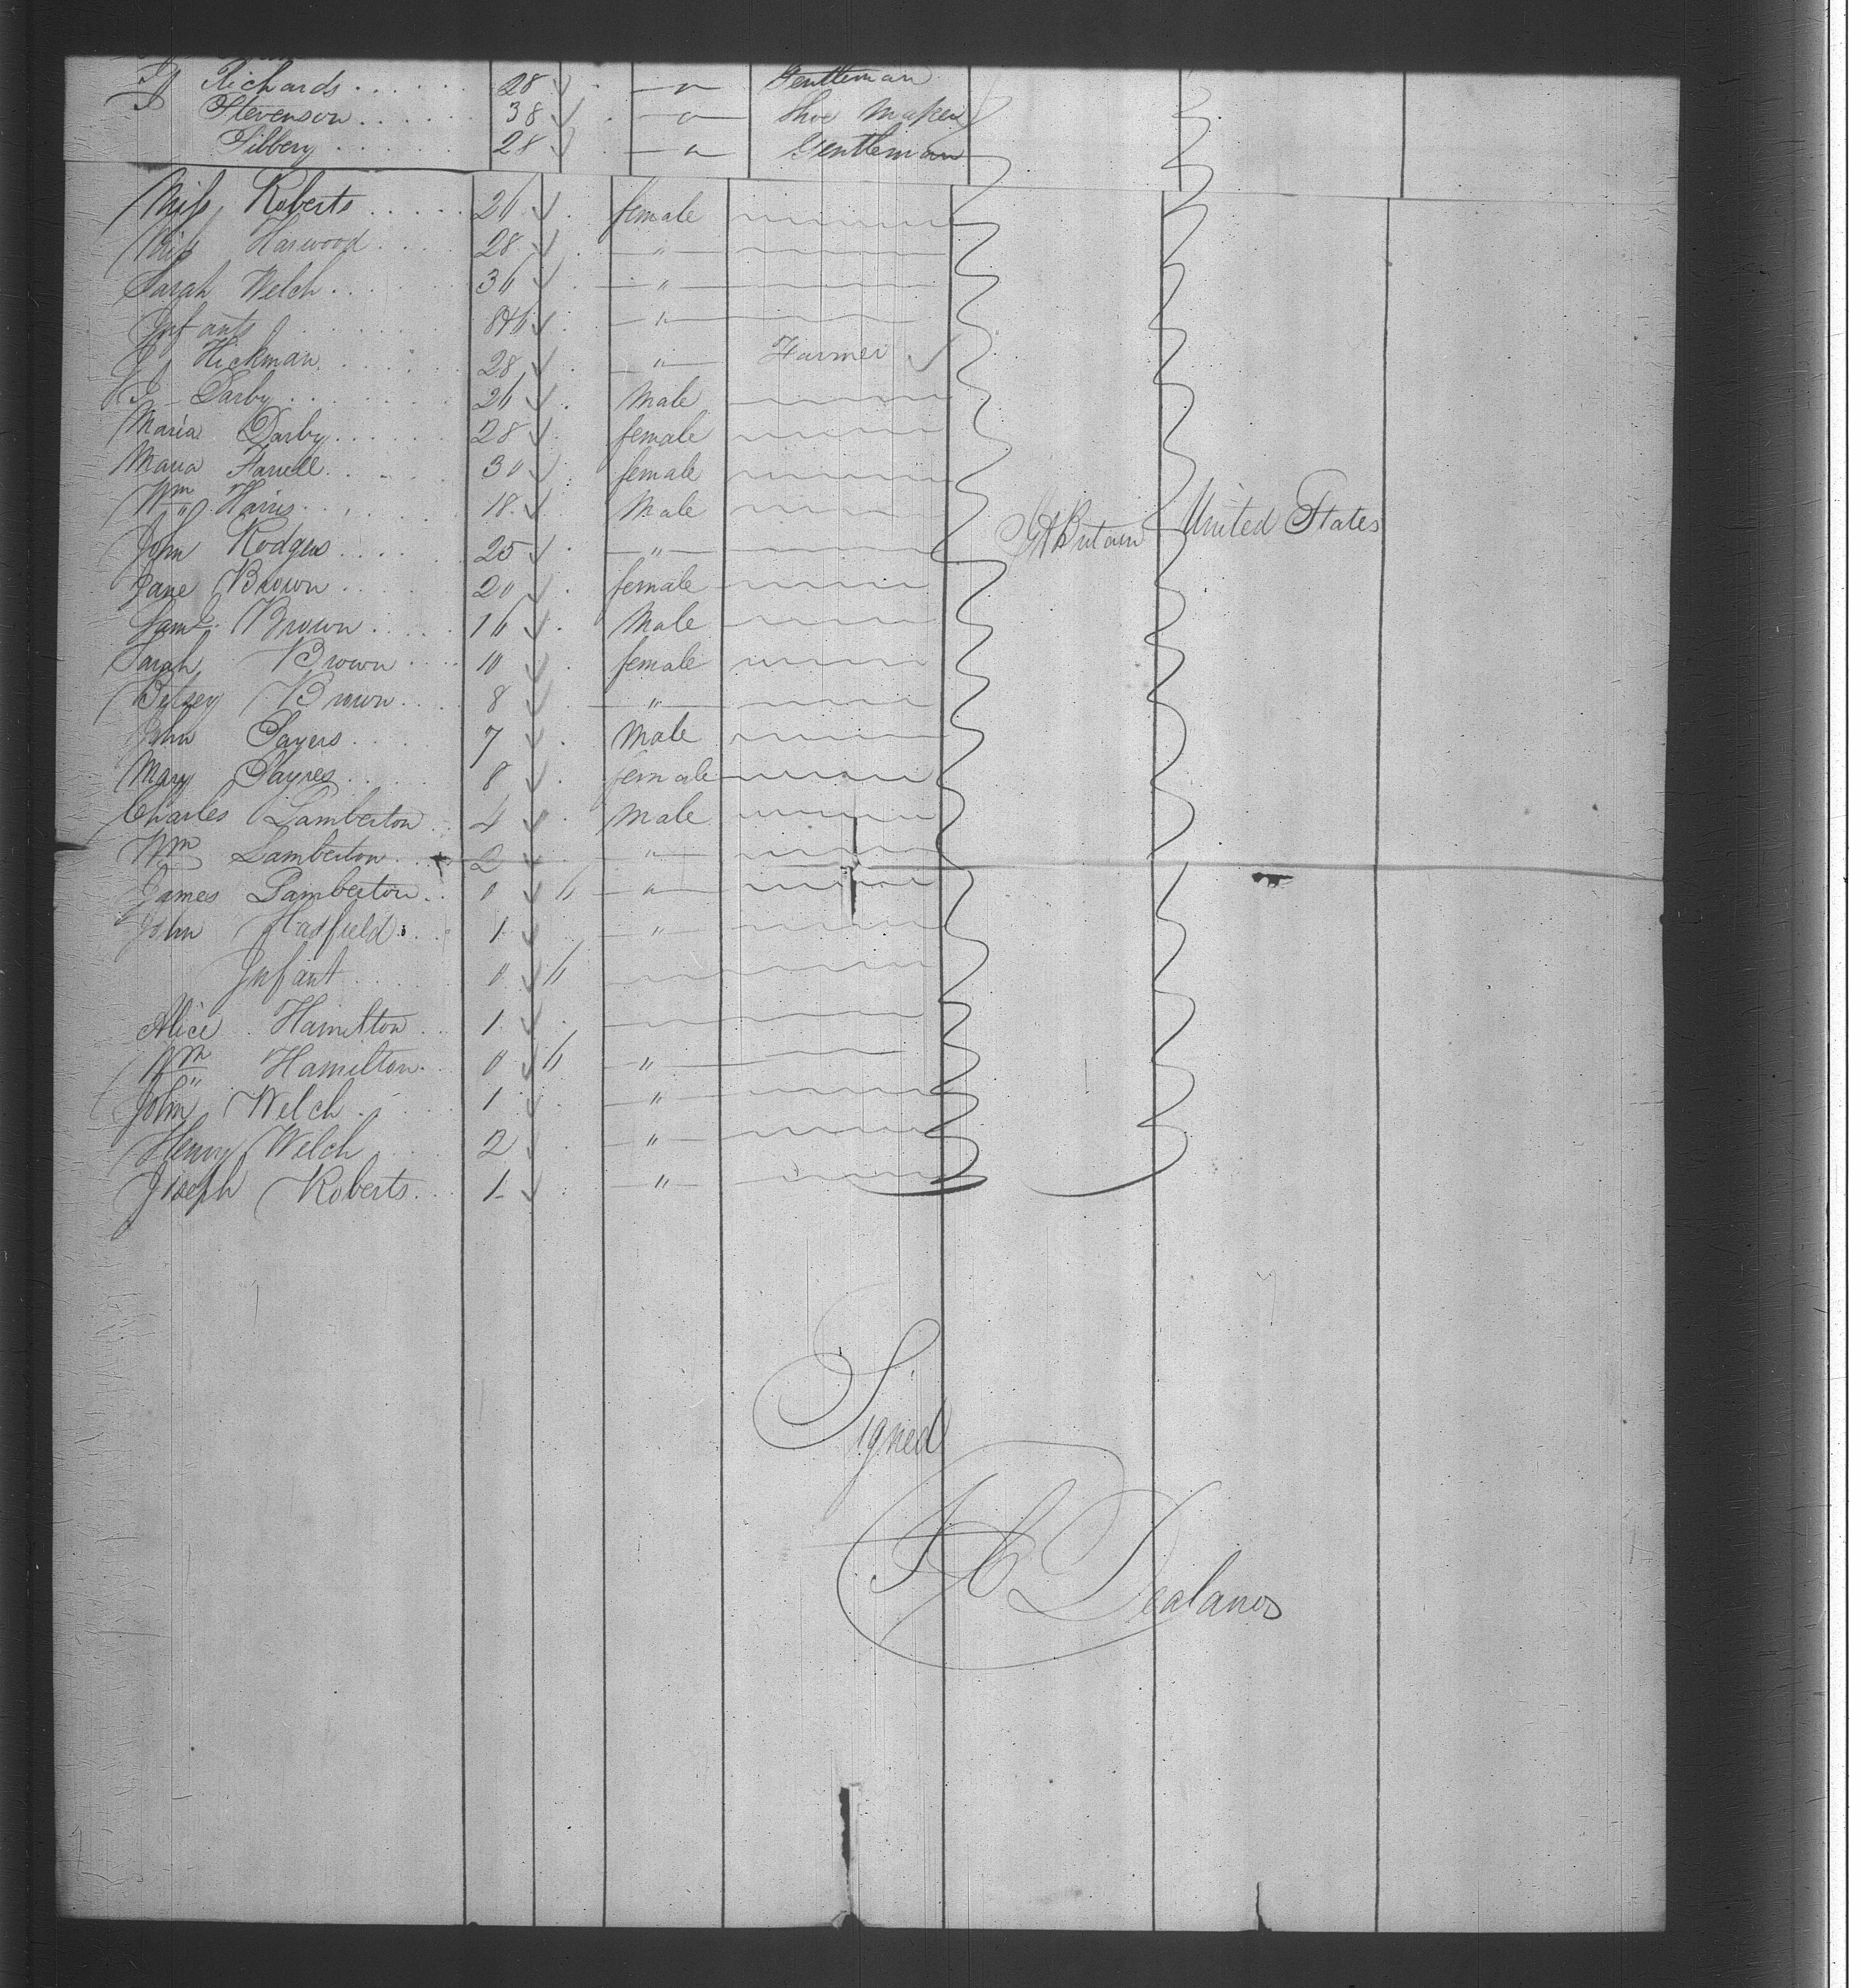 Richards . . . . . . 28 — " — Gentleman
Stevenson . . . . . . 38 — " — Shoe Maker
Silbery . . . . . . 28 — " — Gentleman
Miss Roberts . . . . . 26 female
Miss Harwood . . . . 28 "
Sarah Welch . . . . . 36 — " —
Infants . . . . . . — " —
Hickman . . . . . . 28 — " — Farmer
Darby . . . . . . . 26 Male
Maria Darby . . . . . . 28 female
Maria Farrell . . . . . 30 female
Wm Harris . . . . . . 18 Male
Gt Britain United States
John Rodgers . . . . 25 — " —
Jane Brown . . . . 20 female
Saml Brown . . . . . 16 Male
Sarah Brown . . . . 10 female
Betsey Brown . . . . 8 — " —
John Sayers . . . . 7 Male
Mary Sayres . . . . 8 female
Charles Lamberton . . 4 Male
Wm Lamberton . . . 2 "
James Lamberton . . 0 6 — " —
John Hadfield . . . 1 — " —
Infant . . . . . . 0 6
Alice Hamilton . . 1
Wm Hamilton . . 0 6 — " —
John Welch . . . . 1 "
Henry Welch . . . 2 — " —
Joseph Roberts . . . 1 — " —
Signed